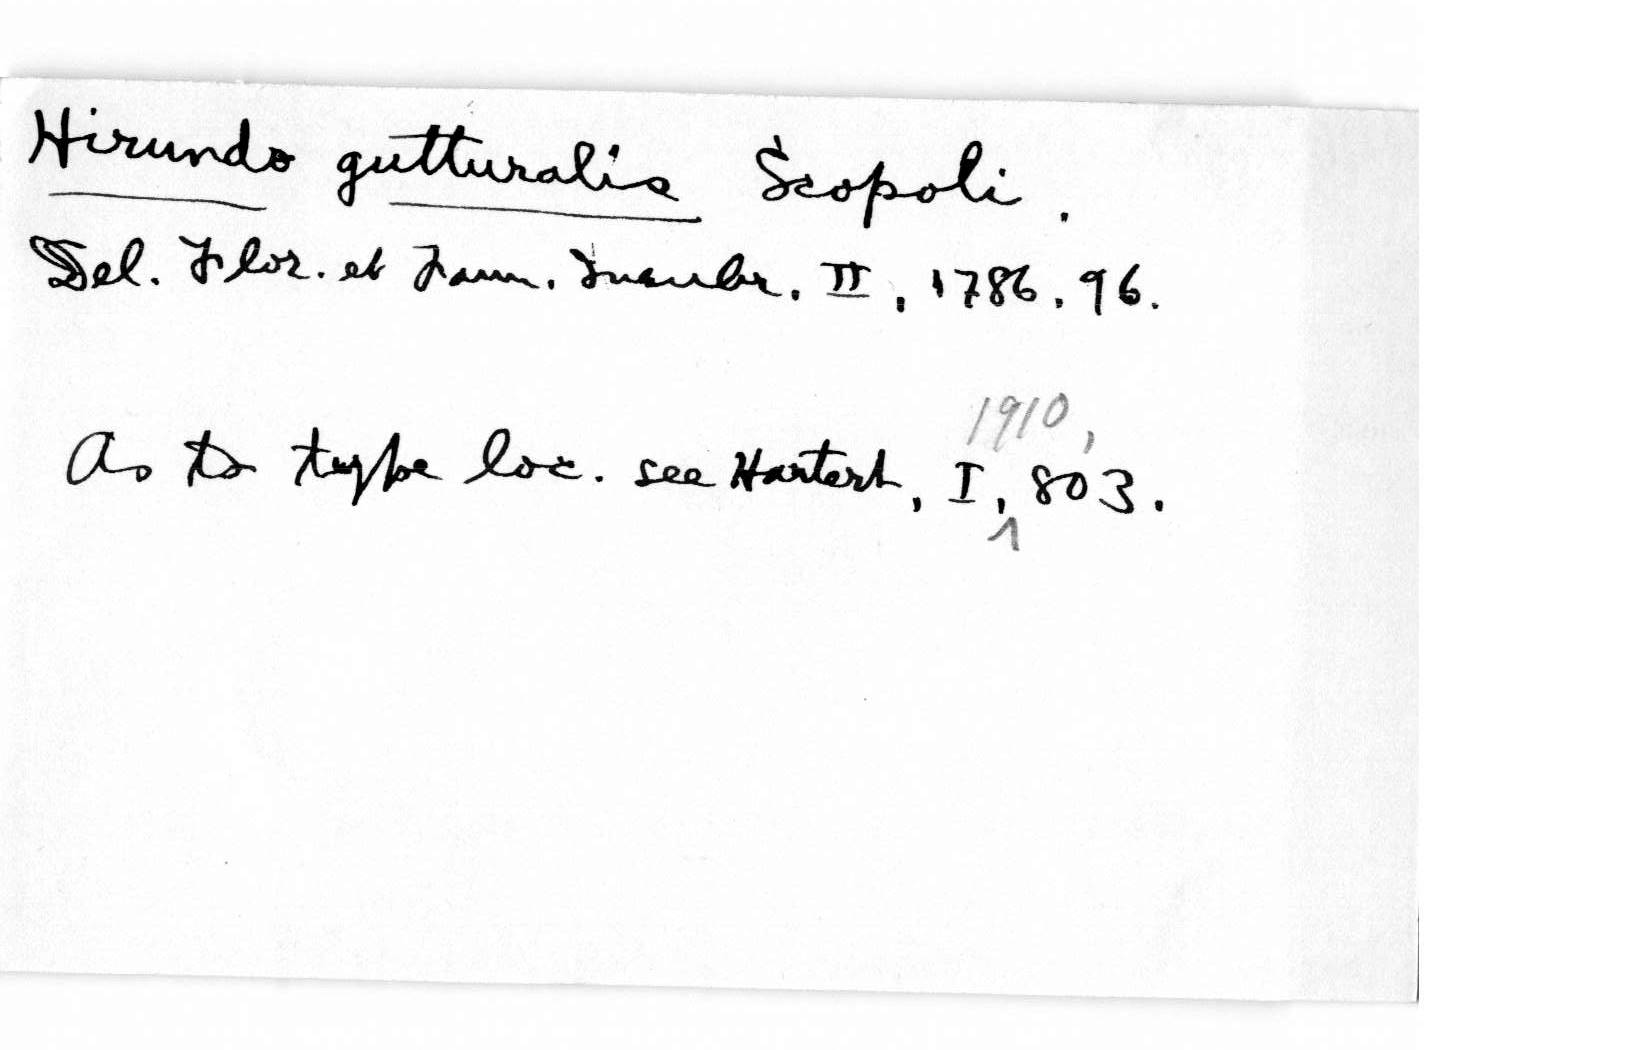 Hirundo gutturalis Scopoli.
Del. Flor. et Faun. Insubr. II, 1786, 96.
As to type loc. see Hartert, I, 1910, 803.